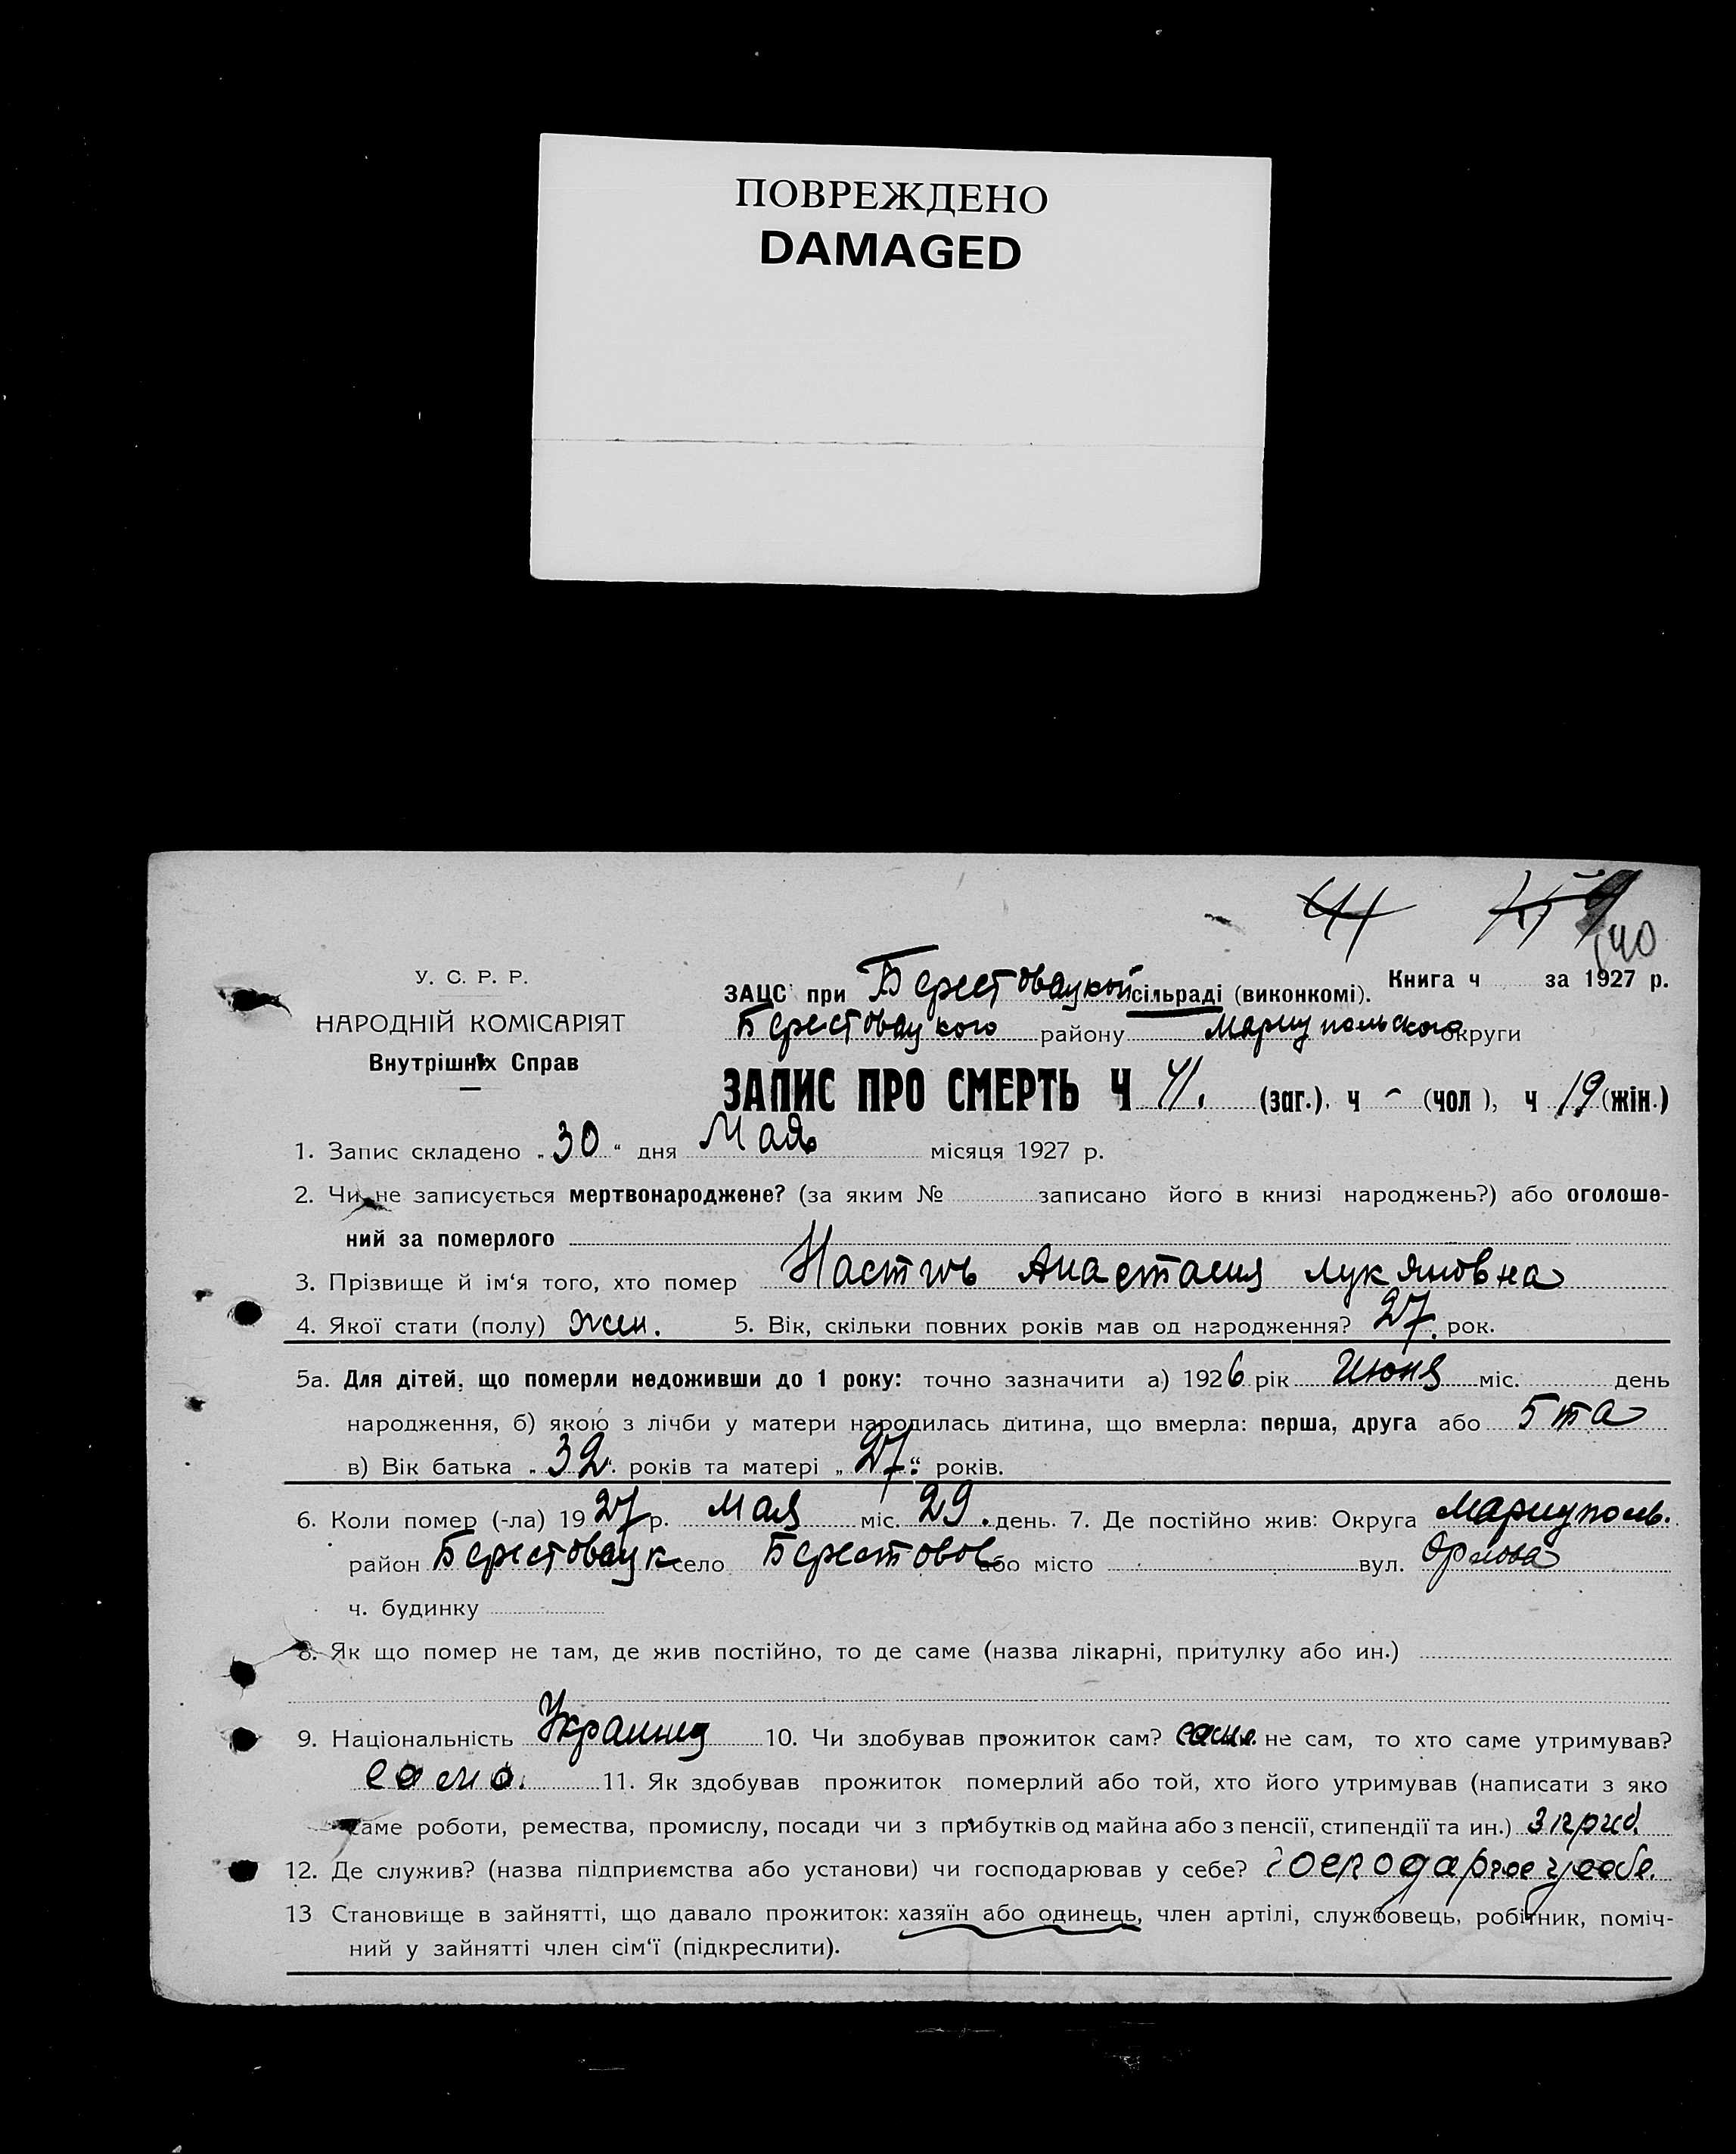 ПОВРЕЖДЕНО
DAMAGED
41
140
У. С. Р. Р.
НАРОДНІЙ КОМІСАРІЯТ
Внутрішніх Справ
Книга ч за 1927 р.
ЗАЦС при Берестовацкой сільраді (виконкомі).
Берестовацкого району Мариупольского округи
ЗАПИС ПРО СМЕРТЬ Ч 41. (заг.), ч - (чол), ч 19 (жін.)
1. Запис складено „30“ дня Мая місяця 1927 р.
2. Чи не записується мертвонароджене? (за яким № записано його в книзі народжень?) або оголоше-
ний за померлого
3. Прізвище й ім‘я того, хто помер Анастасия Лукяновна
4. Якої стати (полу) жен. 5. Вік, скільки повних років мав од народження? 27. рок.
5а. Для дітей, що померли недоживши до 1 року: точно зазначити а) 1926 рік Июня міс. день
народження, б) якою з лічби у матери народилась дитина, що вмерла: перша, друга або 5та
в) Вік батька „32“ років та матері „27“ років.
6. Коли помер (-ла) 1927 р. Мая міс. 29. день. 7. Де постійно жив: Округа Мариуполь.
район Берестовацк село Берестовое або місто вул. Орлова
ч. будинку
8. Як що помер не там, де жив постійно, то де саме (назва лікарні, притулку або ин.)
9. Національність 10. Чи здобував прожиток сам? не сам, то хто саме утримував?
сама. 11. Як здобував прожиток померлий або той, хто його утримував (написати з яко
саме роботи, ремества, промислу, посади чи з прибутків од майна або з пенсії, стипендії та ин.) з приб.
12. Де служив? (назва підприємства або установи) чи господарював у себе? у себе.
13 Становище в зайнятті, що давало прожиток: хазяїн або одинець, член артілі, службовець, робітник, поміч-
ний у зайнятті член сім‘ї (підкреслити).